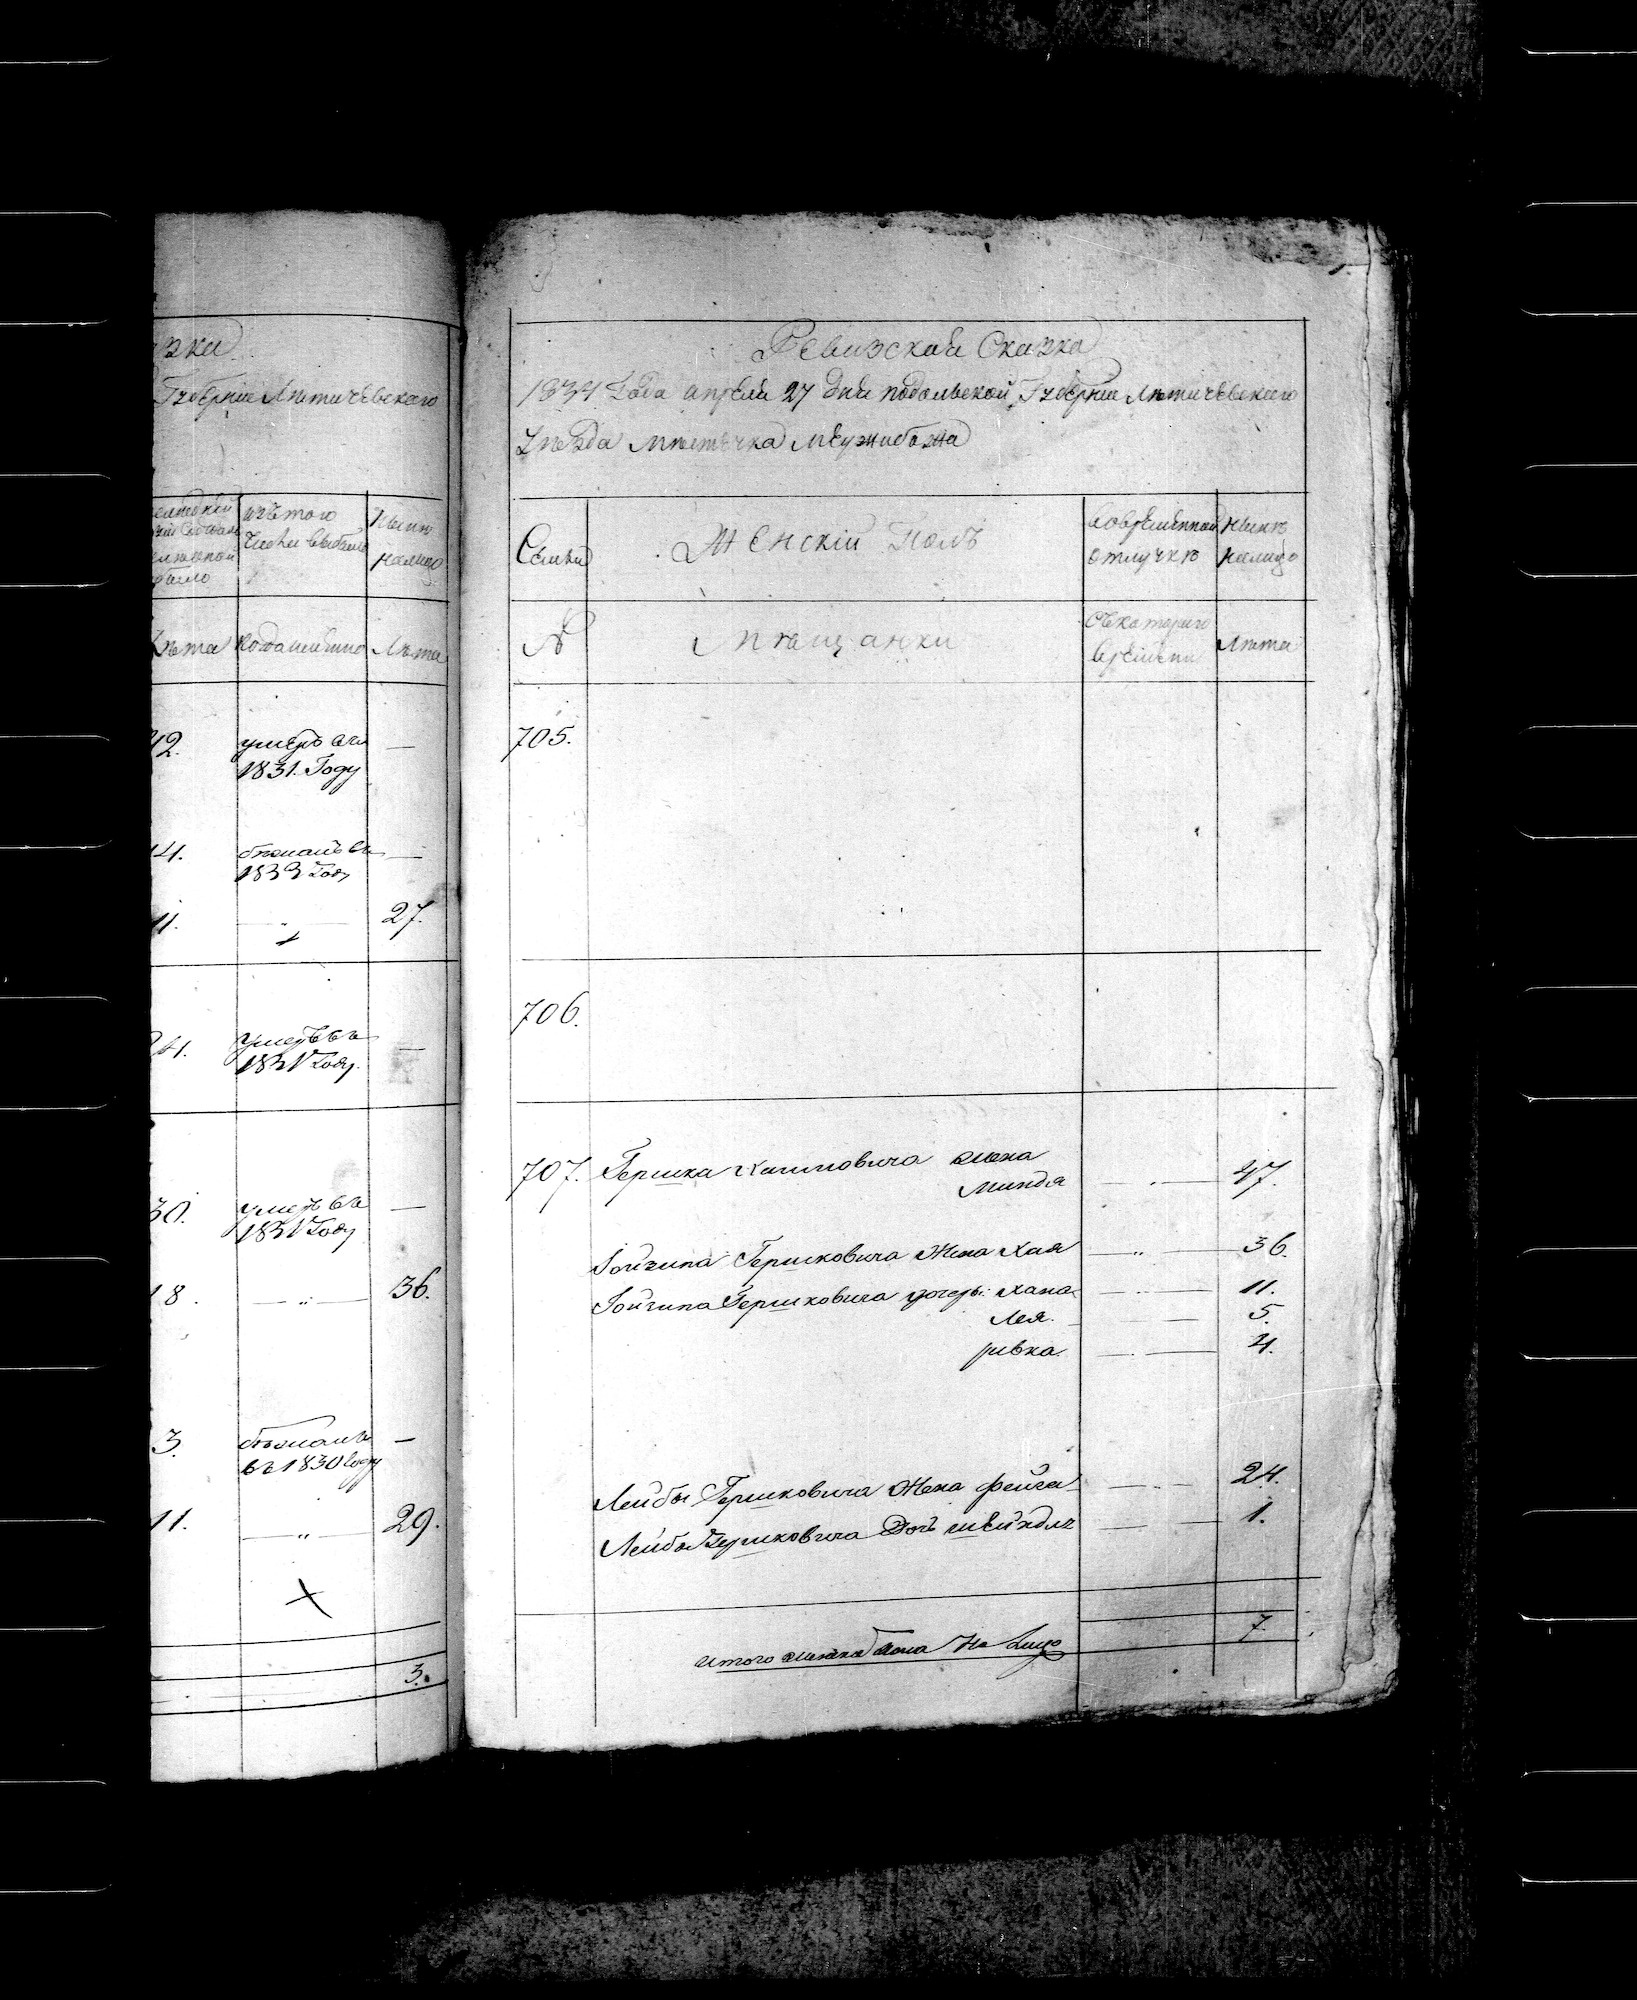 зка
Губерніи Летичевскаго
изъ того
числа выбыло
нынѣ
налицо
было
Лѣта
когда имянно
Лѣта
42.
умеръ въ
1831. Году
—
14.
бѣжалъ въ
1833 Году
—
11.
27.
24.
умеръ въ
1831 Году.
—
30.
умеръ въ
1831 Году
—
18.
36.
3.
бѣжалъ
въ 1830 Году
—
11.
29.
3.
Ревизская Сказка
1834 Года апреля 27 дня подольской Губерніи Летичевскаго
уѣзда мѣстечка Меужибожа
Семьи
Женскій Полъ
во временной
отлучкѣ
нынѣ
налицо
№
Мѣщанки
Съ котораго
времени
Лѣта
705.
706.
707. Гершка Хаимовича жена
Миндя 47.
Іойхина Гершковича Жена Хая 36.
Іойхина Гершковича дочеры: Хана 11.
Лея. 5.
ривка. 4.
Лейбы Гершковича Жена фейга 24.
Лейбы Гершковича Дочь шейндля 1.
итого женска пола На Лицо 7.